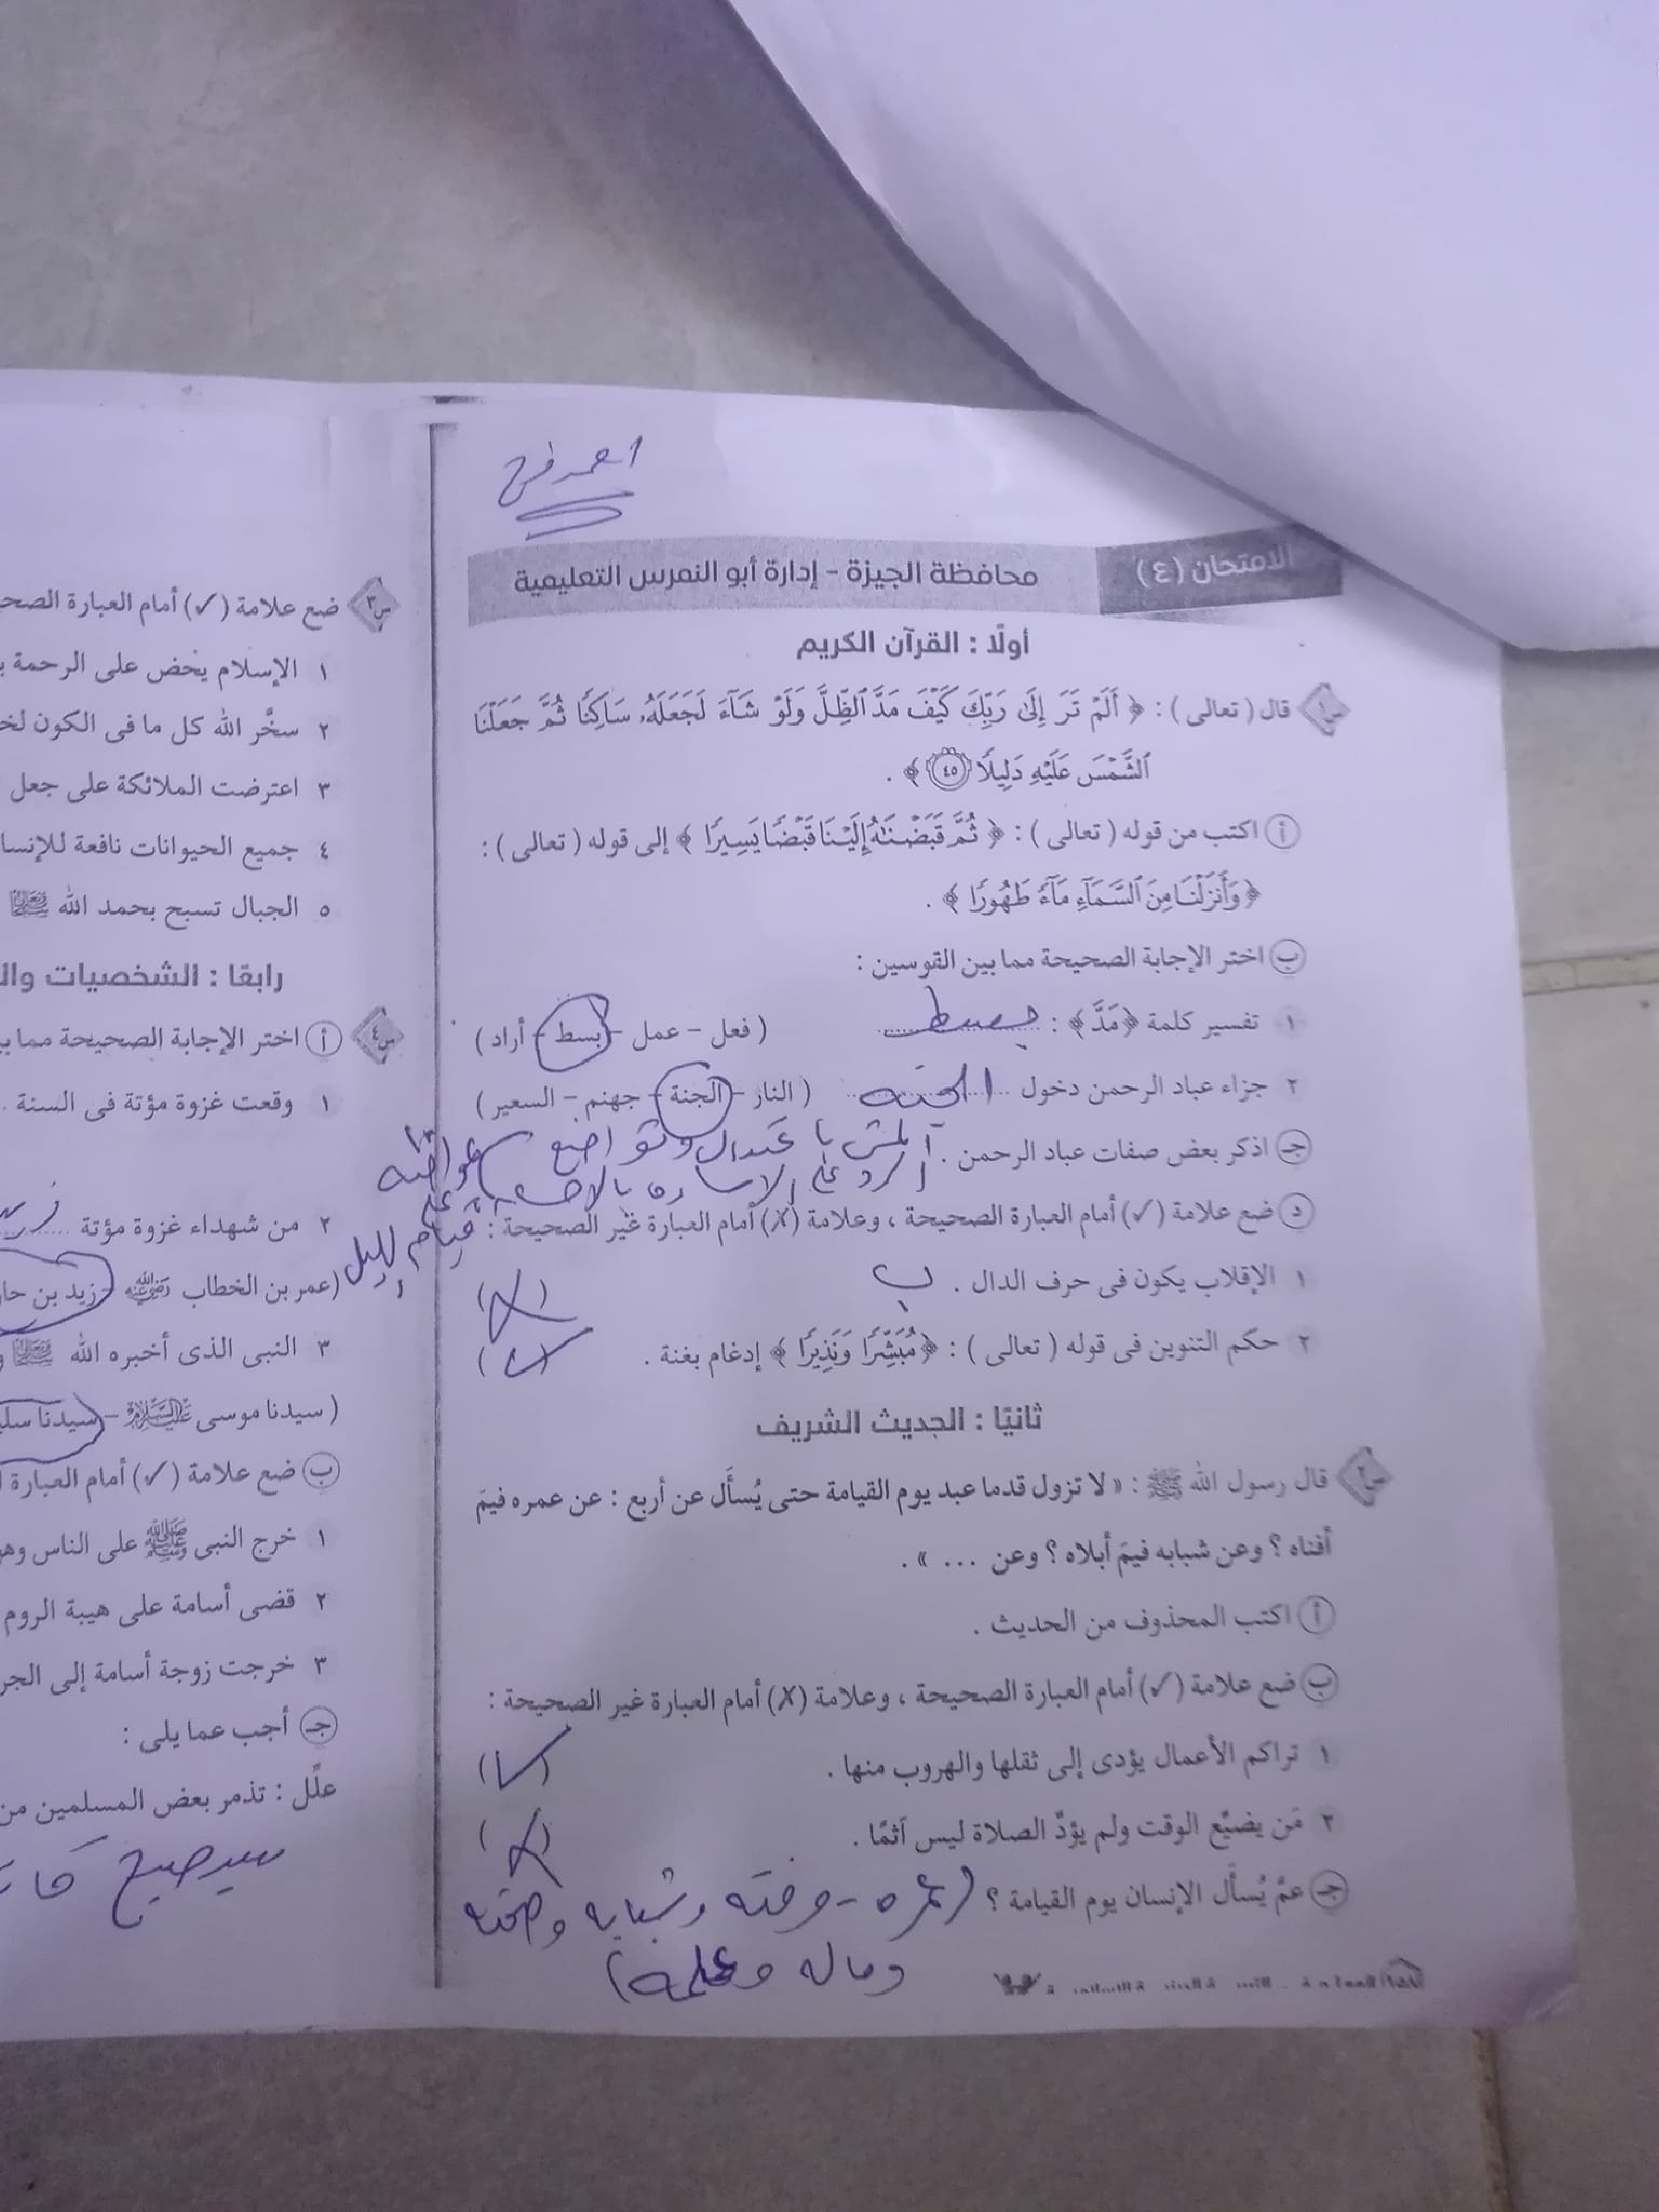 احمد فرج
الامتحان (٤) محافظة الجيزة - إدارة أبو النمرس التعليمية
أولًا : القرآن الكريم
س١ قال ( تعالى ) : ﴿ أَلَمْ تَرَ إِلَىٰ رَبِّكَ كَيْفَ مَدَّ ٱلظِّلَّ وَلَوْ شَآءَ لَجَعَلَهُۥ سَاكِنًا ثُمَّ جَعَلْنَا
ٱلشَّمْسَ عَلَيْهِ دَلِيلًا ٤٥ ﴾ .
أ اكتب من قوله ( تعالى ) : ﴿ ثُمَّ قَبَضْنَٰهُ إِلَيْنَا قَبْضًا يَسِيرًا ﴾ إلى قوله ( تعالى ) :
﴿ وَأَنزَلْنَا مِنَ ٱلسَّمَآءِ مَآءً طَهُورًا ﴾ .
ب اختر الإجابة الصحيحة مما بين القوسين :
١ تفسير كلمة ﴿ مَدَّ ﴾ : بسط ( فعل - عمل - بسط - أراد )
٢ جزاء عباد الرحمن دخول الجنة ( النار - الجنة - جهنم - السعير )
جـ اذكر بعض صفات عباد الرحمن . وتواضع
الرد على الاساءة
قيام الليل
د ضع علامة (✓) أمام العبارة الصحيحة ، وعلامة (✗) أمام العبارة غير الصحيحة :
١ الإقلاب يكون فى حرف الدال . ب (✗)
٢ حكم التنوين فى قوله ( تعالى ) : ﴿ مُبَشِّرًا وَنَذِيرًا ﴾ إدغام بغنة . (✓)
ثانيًا : الحديث الشريف
س٢ قال رسول الله ﷺ : « لا تزول قدما عبد يوم القيامة حتى يُسأَل عن أربع : عن عمره فيمَ
أفناه ؟ وعن شبابه فيمَ أبلاه ؟ وعن ... » .
أ اكتب المحذوف من الحديث .
ب ضع علامة (✓) أمام العبارة الصحيحة ، وعلامة (✗) أمام العبارة غير الصحيحة :
١ تراكم الأعمال يؤدى إلى ثقلها والهروب منها . (✓)
٢ مَن يضيِّع الوقت ولم يؤدِّ الصلاة ليس آثمًا . (✗)
جـ عمَّ يُسأَل الإنسان يوم القيامة ؟ (عمره - وقته وشبابه وصحته
وماله وعلمه)
س٣ ضع علامة (✓) أمام العبارة الصح
١ الإسلام يحض على الرحمة
٢ سخَّر الله كل ما فى الكون لخ
٣ اعترضت الملائكة على جعل
٤ جميع الحيوانات نافعة للإنسا
٥ الجبال تسبح بحمد الله
رابعًا : الشخصيات وال
س٤ أ اختر الإجابة الصحيحة مما ب
١ وقعت غزوة مؤتة فى السنة
٢ من شهداء غزوة مؤتة
(عمر بن الخطاب رضي الله عنه - زيد بن حا
٣ النبى الذى أخبره الله
( سيدنا موسى عليه السلام - سيدنا سلي
ب ضع علامة (✓) أمام العبارة
١ خرج النبى ﷺ على الناس وهو
٢ قضى أسامة على هيبة الروم
٣ خرجت زوجة أسامة إلى الجر
جـ أجب عما يلى :
علِّل : تذمر بعض المسلمين من